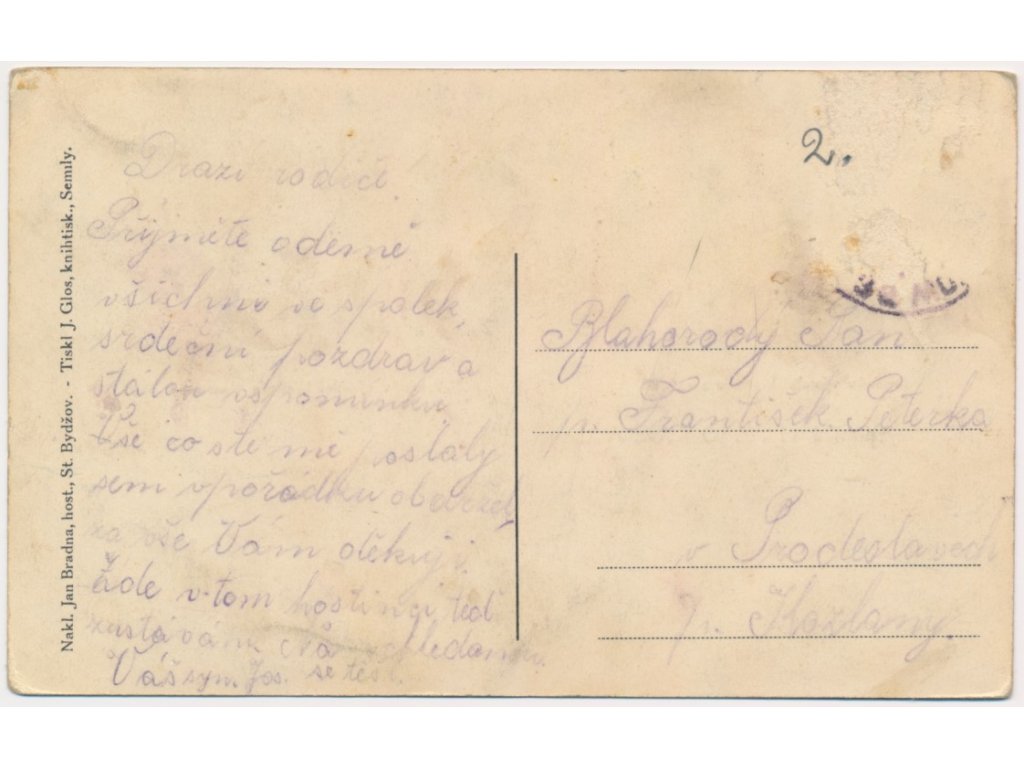 Nakl. Jan Bradna, host., St. Bydžov. - Tiskl J. Glos, knihtisk., Semily.
Drazí rodiče!
Příjměte odemě
všichni ve spolek
srdečni pozdrav a
stálou vspomínku
Vše co ste mě poslaly
sem vpořádku obdržel
za vše Vám děkuji.
Zde v tom hostinci teď
zustávám. Na shledanou
Váš syn. Jos. se těší.
2.
Blahorody Pan
pn. František Peterka
v Prodeslavech
p. Kožlany.